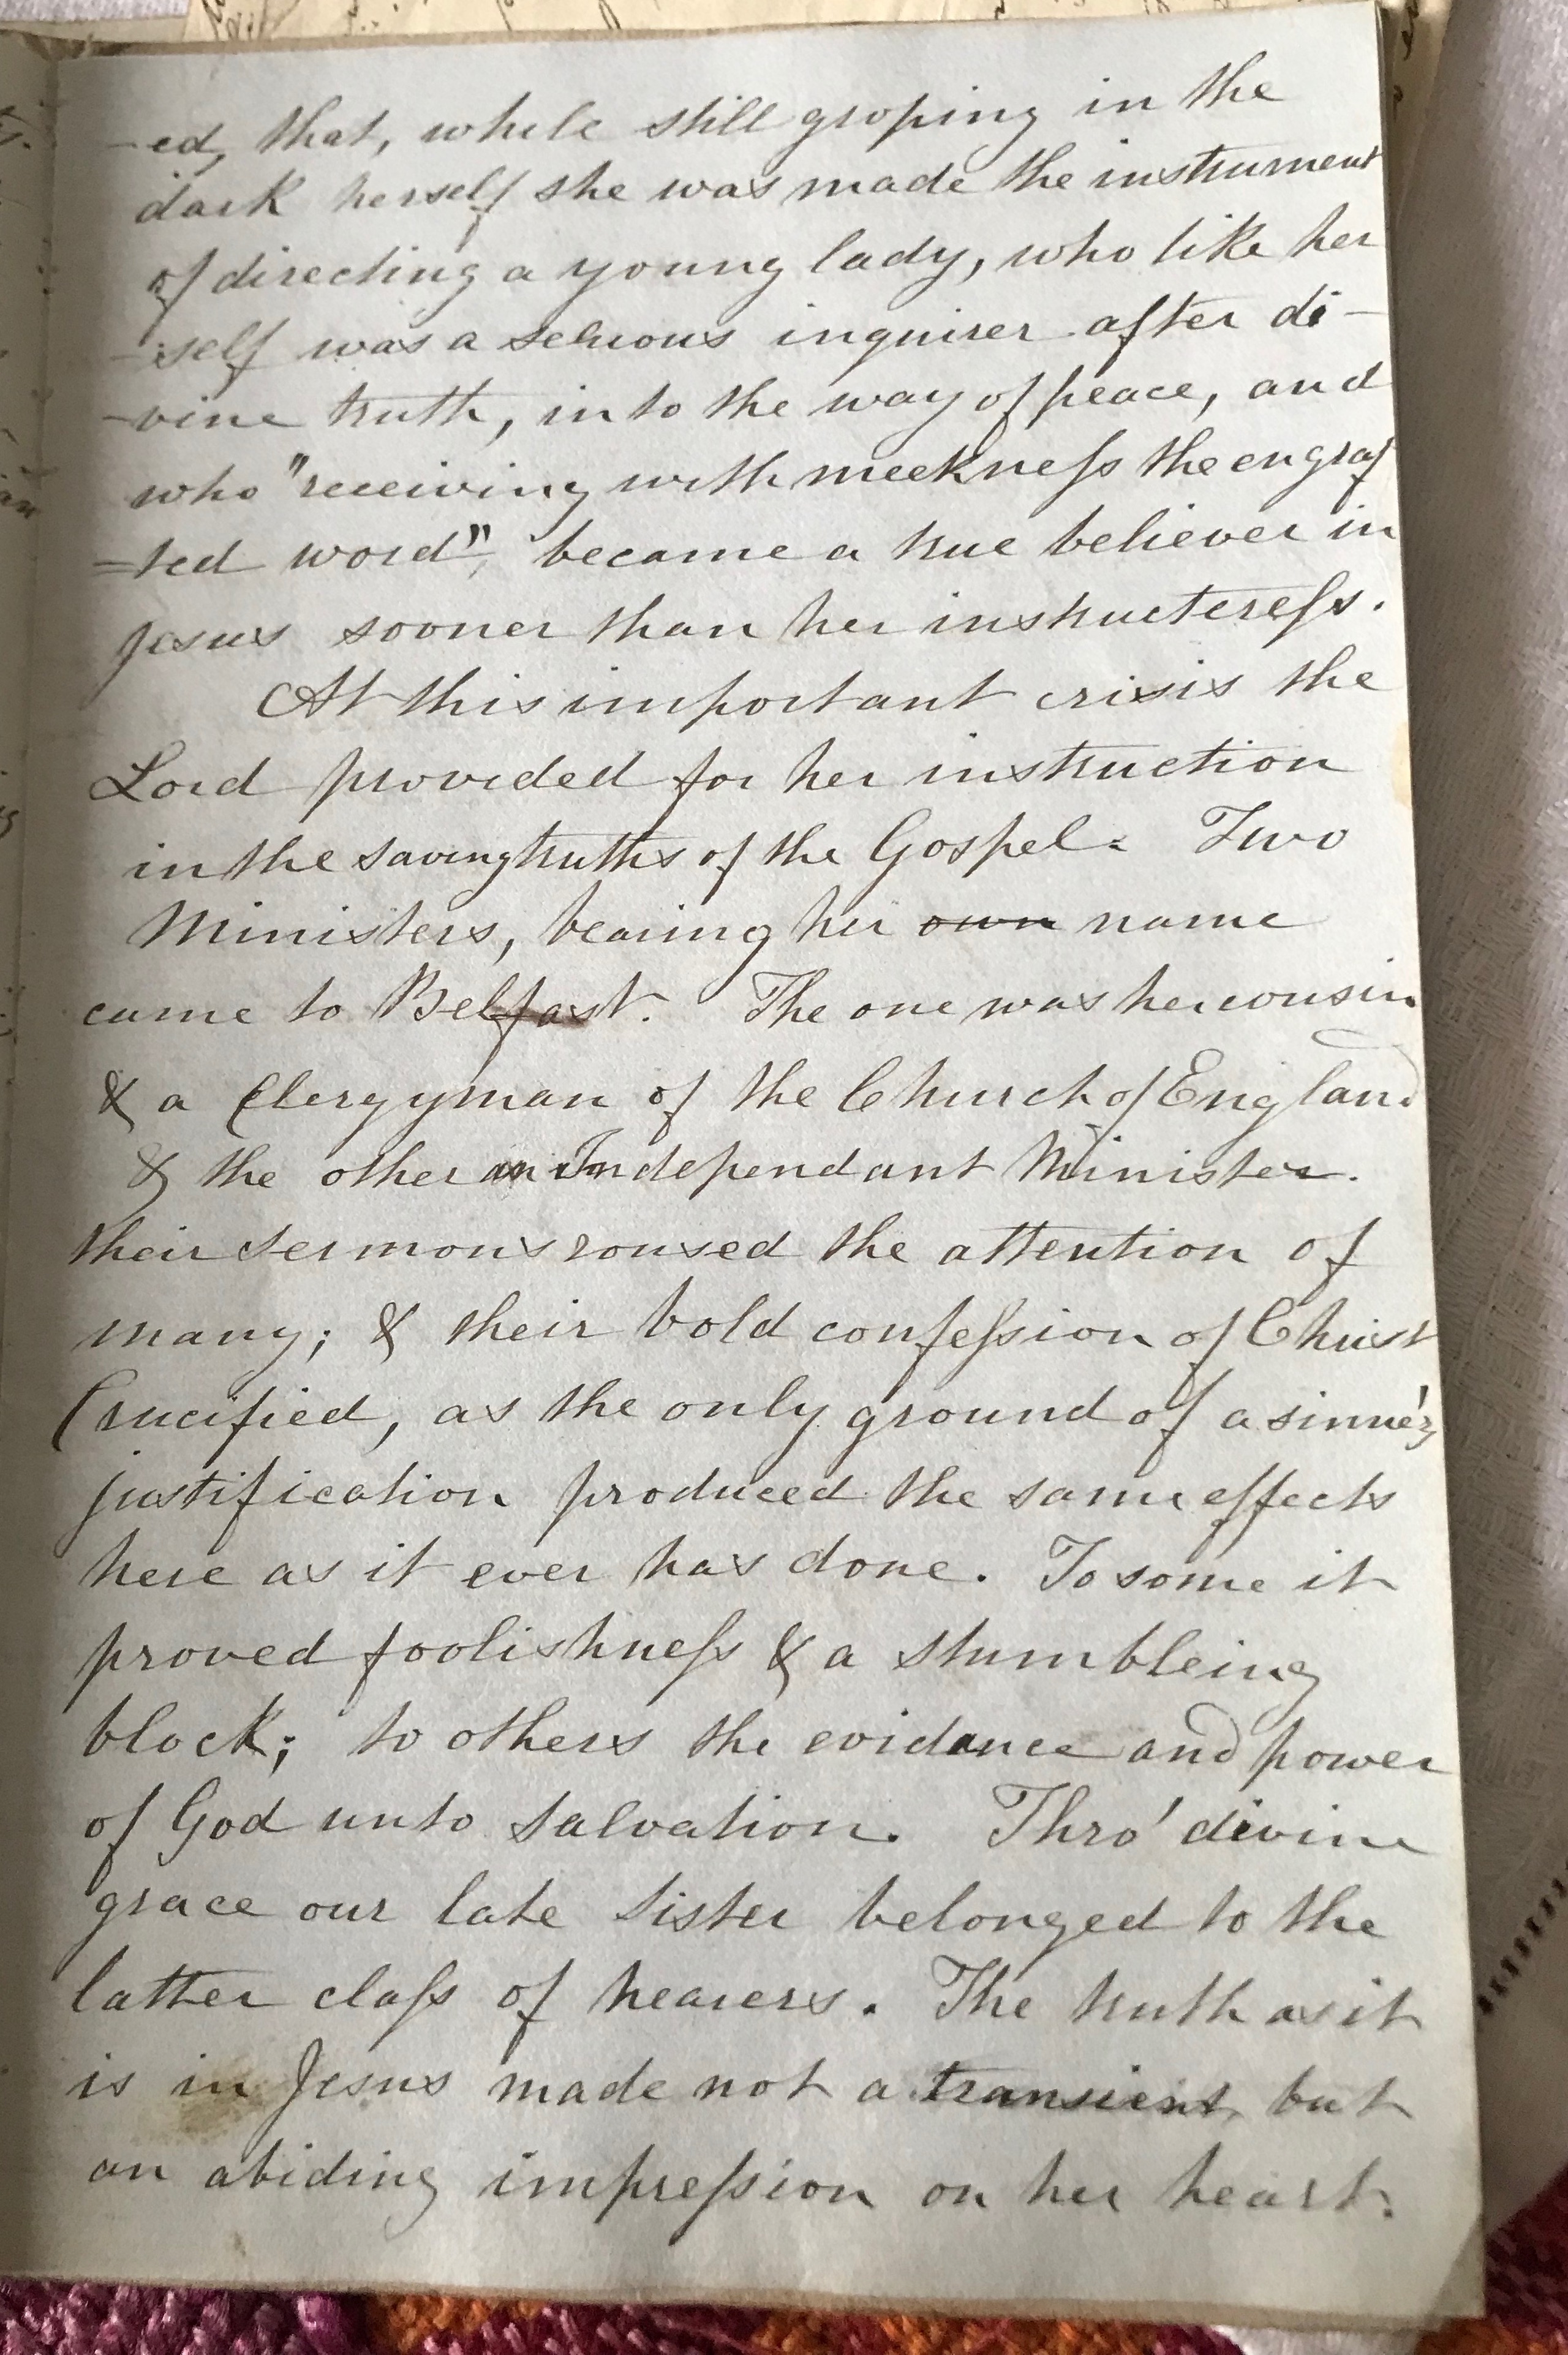 -ed, that, while still groping in the
dark herself she was made the instrument
of directing a young lady, who like her
-self was a serious inquirer after di-
-vine truth, into the way of peace, and
who "receiving with meekneſs the engraf
=ted word", became a true believer in
Jesus sooner than her instructereſs.
At this important crisis the
Lord provided for her instruction
in the saving truths of the Gospel. Two
Ministers, bearing her own name
came to Belfast. The one was her cousin
& a Clergyman of the Church of England
& the other an Independant Minister.
their sermons roused the attention of
many; & their bold confeſsion of Christ
Crucified, as the only ground of a sinner's
justification produced the same effects
here as it ever has done. To some it
proved foolishneſs & a stumbleing
block; to others the evidance and power
of God unto salvation. Thro' divine
grace our late Sister belonged to the
latter claſs of hearers. The truth as it
is in Jesus made not a transient, but
an abiding impreſsion on her heart.